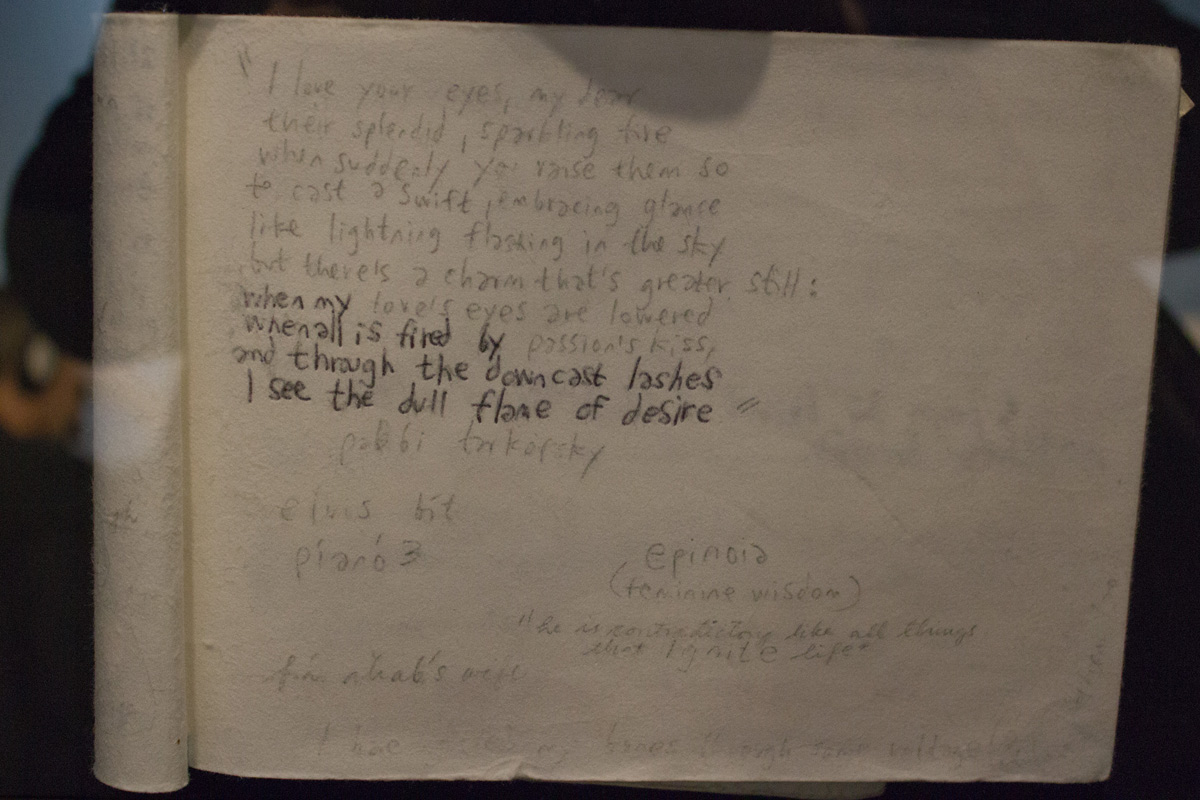 "I love your eyes, my dear
their splendid, sparkling fire
when suddenly you raise them so
to cast a swift, embracing glance
like lightning flashing in the sky
but there's a charm that's greater still:
when my love's eyes are lowered
when all is fired by passion's kiss,
and through the downcast lashes
I see the dull flame of desire"
pabbi tarkofsky
elvis bit
píanó 3
epinoia
(feminine wisdom)
"he is contradictory like all things
that ignite life"
ahab's wife
I my bones through some voltage